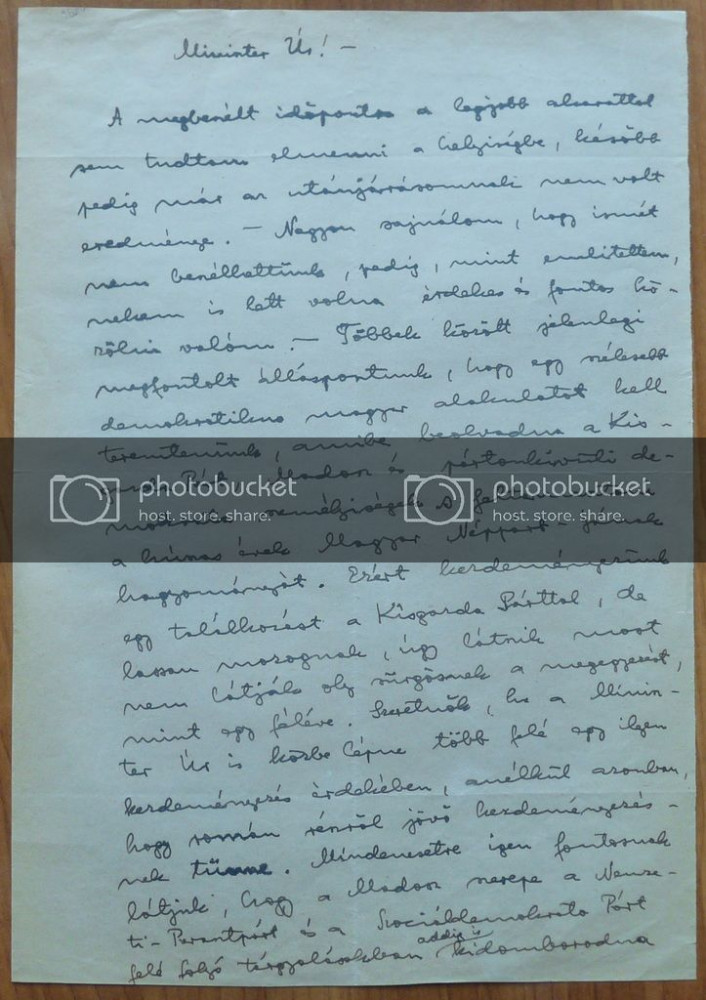 Miniszter Úr! –
A megbeszélt időpontra a legjobb akarattal
sem tudtam elmenni a helyiségbe, később
pedig már az utánjárásomnak nem volt
eredménye. – Nagyon sajnálom, hogy ismét
nem beszélhettünk, pedig, mint említettem,
nekem is lett volna érdekes és fontos kö-
zölni valóm. – Többek között jelenlegi
megfontolt álláspontunk, hogy egy szélesebb
demokratikus magyar alakulatot kell
teremtenünk, amibe beolvadna a Kis-
Párt, Madosz és pártonkívüli de-
személyiségek s
a húszas évek Magyar Néppárt-jának
hagyományát. Ezért kezdeményezünk
egy találkozást a Kisgazda Párttal, de
lassan mozognak, úgy látszik most
nem látják oly sürgősnek a megegyezést,
mint egy féléve. Szeretnők, ha a Minisz-
ter Úr is közbe lépne több felé egy ilyen
kezdeményezés érdekében, anélkül azonban,
hogy román részről jövő kezdeményezés-
nek tűnne. Mindenesetre igen fontosnak
látjuk, hogy a Madosz szerepe a Nemze-
ti-Parasztpárt és a Szociáldemokrata Párt
felé folyó tárgyalásokban addig is kidomborodna
photobucket
host. store. share.
photobucket
host. store. share.